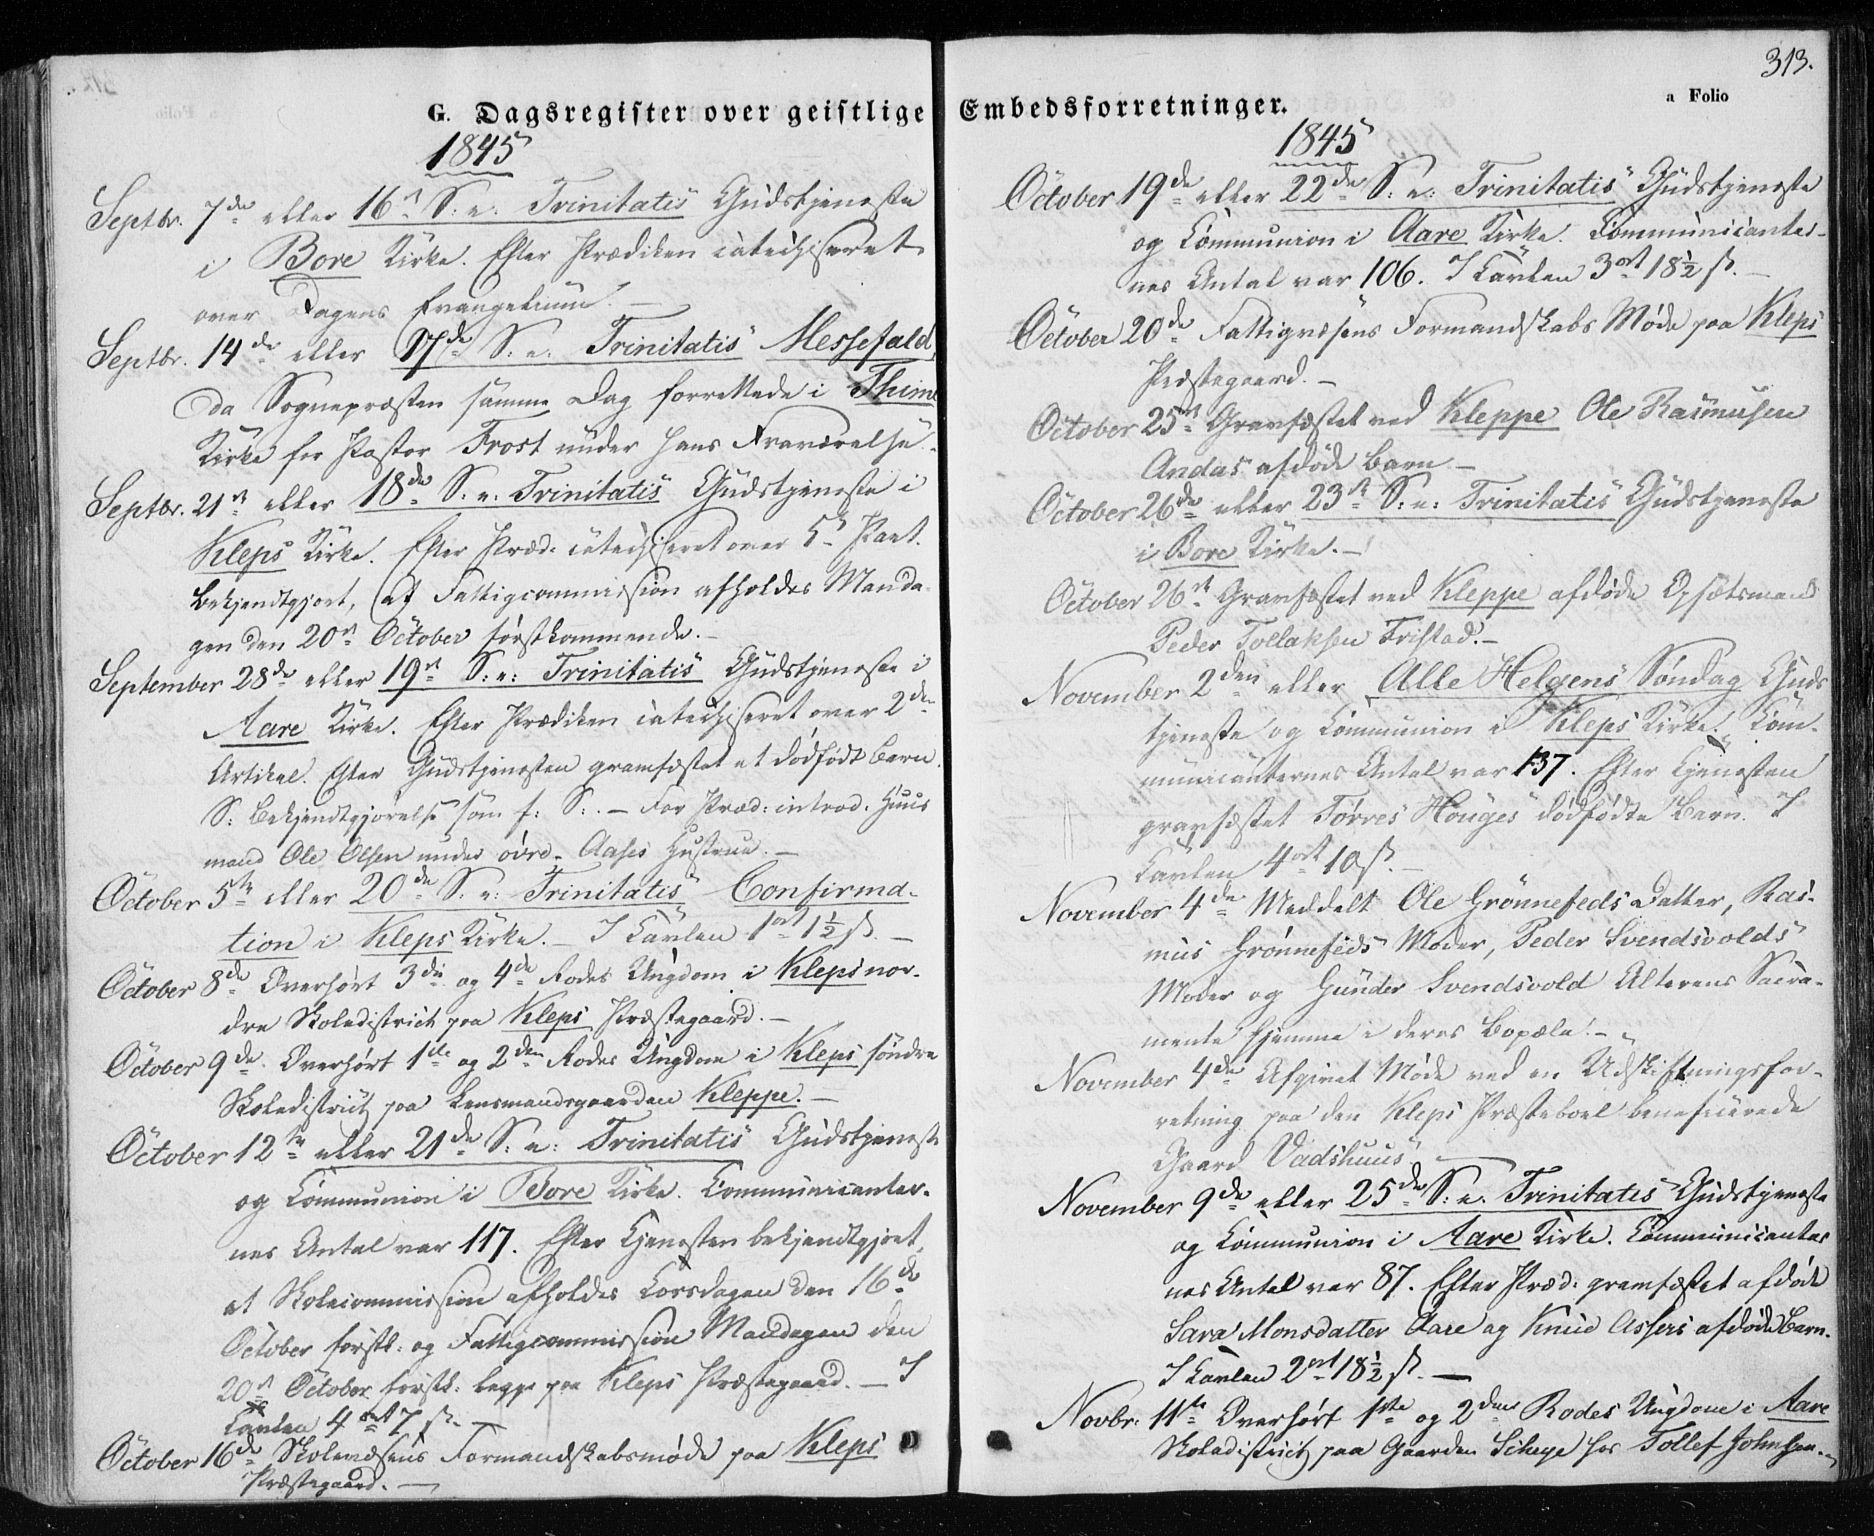 G. Dagsregister over geistlige
1845
Septbr. 7de eller 16n S. e. Trinitatis Gudstjeneste
i Bore Kirke. Efter Prædiken catechiseret
over Dagens Evangelium. –
Septbr. 14de eller 17de S. e. Trinitatis Messefald,
da Sognepræsten samme Dag forrettede i Thime
Kirke for Pastor Frost under hans Fraværelse. –
Septbr. 21n eller 18de S. e. Trinitatis Gudstjeneste i
Kleps Kirke. Efter Præd: catechiseret over 5 Part.
bekjendtgjort, at Fattigcommission afholdes Manda-
gen den 20n October førstkommende. –
September 28de eller 19n S. e. Trinitatis Gudstjeneste i
Aare Kirke. Efter Prædiken catechiseret over 2den
Artikel. Efter Gudstjenesten gravfæstet et dødfødt barn.
S: Bekjendtgjørelse som f: S:. – For Præd: introd. Huus
mand Ole Olsen under øvre-Aases Hustrue. –
October 5te eller 20de S. e. Trinitatis Confirma-
tion i Kleps Kirke. – I Tavlen 1ort 1½ s. –
October 8de Overhørt 3die og 4de Rodes Ungdom i Kleps nor-
dre Skoledistrict paa Kleps Præstegaard. –
October 9de Overhørt 1ste og 2den Rodes Ungdom i Kleps søndre
Skoledistrict paa Lensmandsgaarden Kleppe. –
October 12te eller 21de S. e. Trinitatis Gudstjeneste
og Communion i Bore Kirke. Communicanter-
nes Antal var 117. Efter Tjenesten bekjendtgjort,
at Skolecommission afholdes Torsdagen den 16de
October førstk: og Fattigcommission Mandagen den
20n October førstk: begge paa Kleps Præstegaard. – I
Tavlen 4ort 7 s. –
October 16de Skolevæsens Formandskabsmøde paa Kleps
Præstegaard. –
Embedsforretninger.
a Folio
313.
1845
October 19de eller 22de S. e. Trinitatis Gudstjeneste
og Communion i Aare Kirke. Communicanter-
nes Antal var 106. I Tavlen 3ort 18½ s. –
October 20de Fattigvæsens Formandskabs Møde paa Kleps
Præstegaard. –
October 25n Gravfæstet ved Kleppe Ole Rasmusen
Andas afdøde barn –
October 26de eller 23n S. e. Trinitatis Gudstjeneste
i Bore Kirke. –
October 26n Gravfæstet ved Kleppe afdøde Opsætsmand
Peder Tollaksen Tristad. –
November 2den eller Alle Helgens Søndag Guds
tjeneste og Communion i Kleps Kirke. Com-
municanternes Antal var 137. Efter Tjenesten
gravfæstet Tørres Houges dødfødte Barn. I
Tavlen 4ort 10 s. –
November 4de Meddelt Ole Grønnefeds Datter, Ras-
mus Grønnefeds Moder, Peder Svendsvolds
Moder og Gunder Svendsvold Alterens Sacra-
mente hjemme i deres Bopæle. –
November 4de Afgivet Møde ved en Udskiftningsfor-
retning paa den Kleps Præsteboel beneficerede
Gaard Vadshuus –
November 9de eller 25de S. e. Trinitatis Gudstjeneste
og Communion i Aare Kirke. Communicanter
nes Antal var 87. Efter Præd: gravfæstet afdøde
Sara Monsdatter Aare og Knud Assers afdøde Barn.
I Tavlen 2ort 18½ s. –
Novbr: 11te Overhørt 1ste og 2den Rodes Ungdom i Aare
Skoledistrict paa Gaarden Scheye hos Tollef Johnsen. –